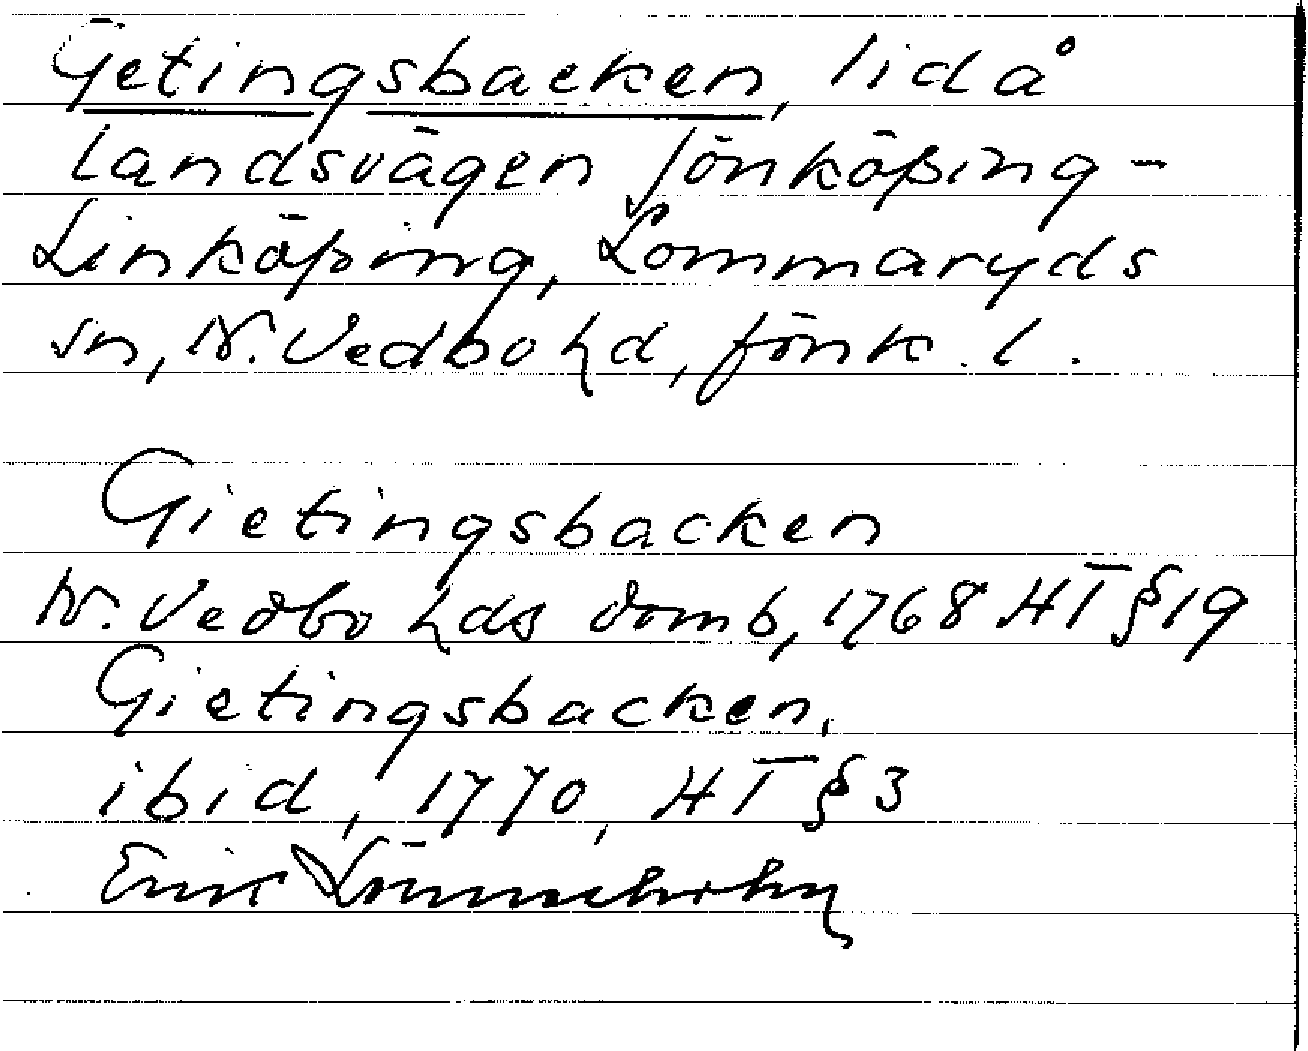 Getingsbacken, lid å
landsvägen Jönköping-
Linköping, Lommaryds
sn, N. Vedbo hd, Jönk. l.
Gietingsbacken
N. Vedbo hds domb, 1768 HT § 19
Gietingsbacken,
ibid, 1770, HT § 3
Erik